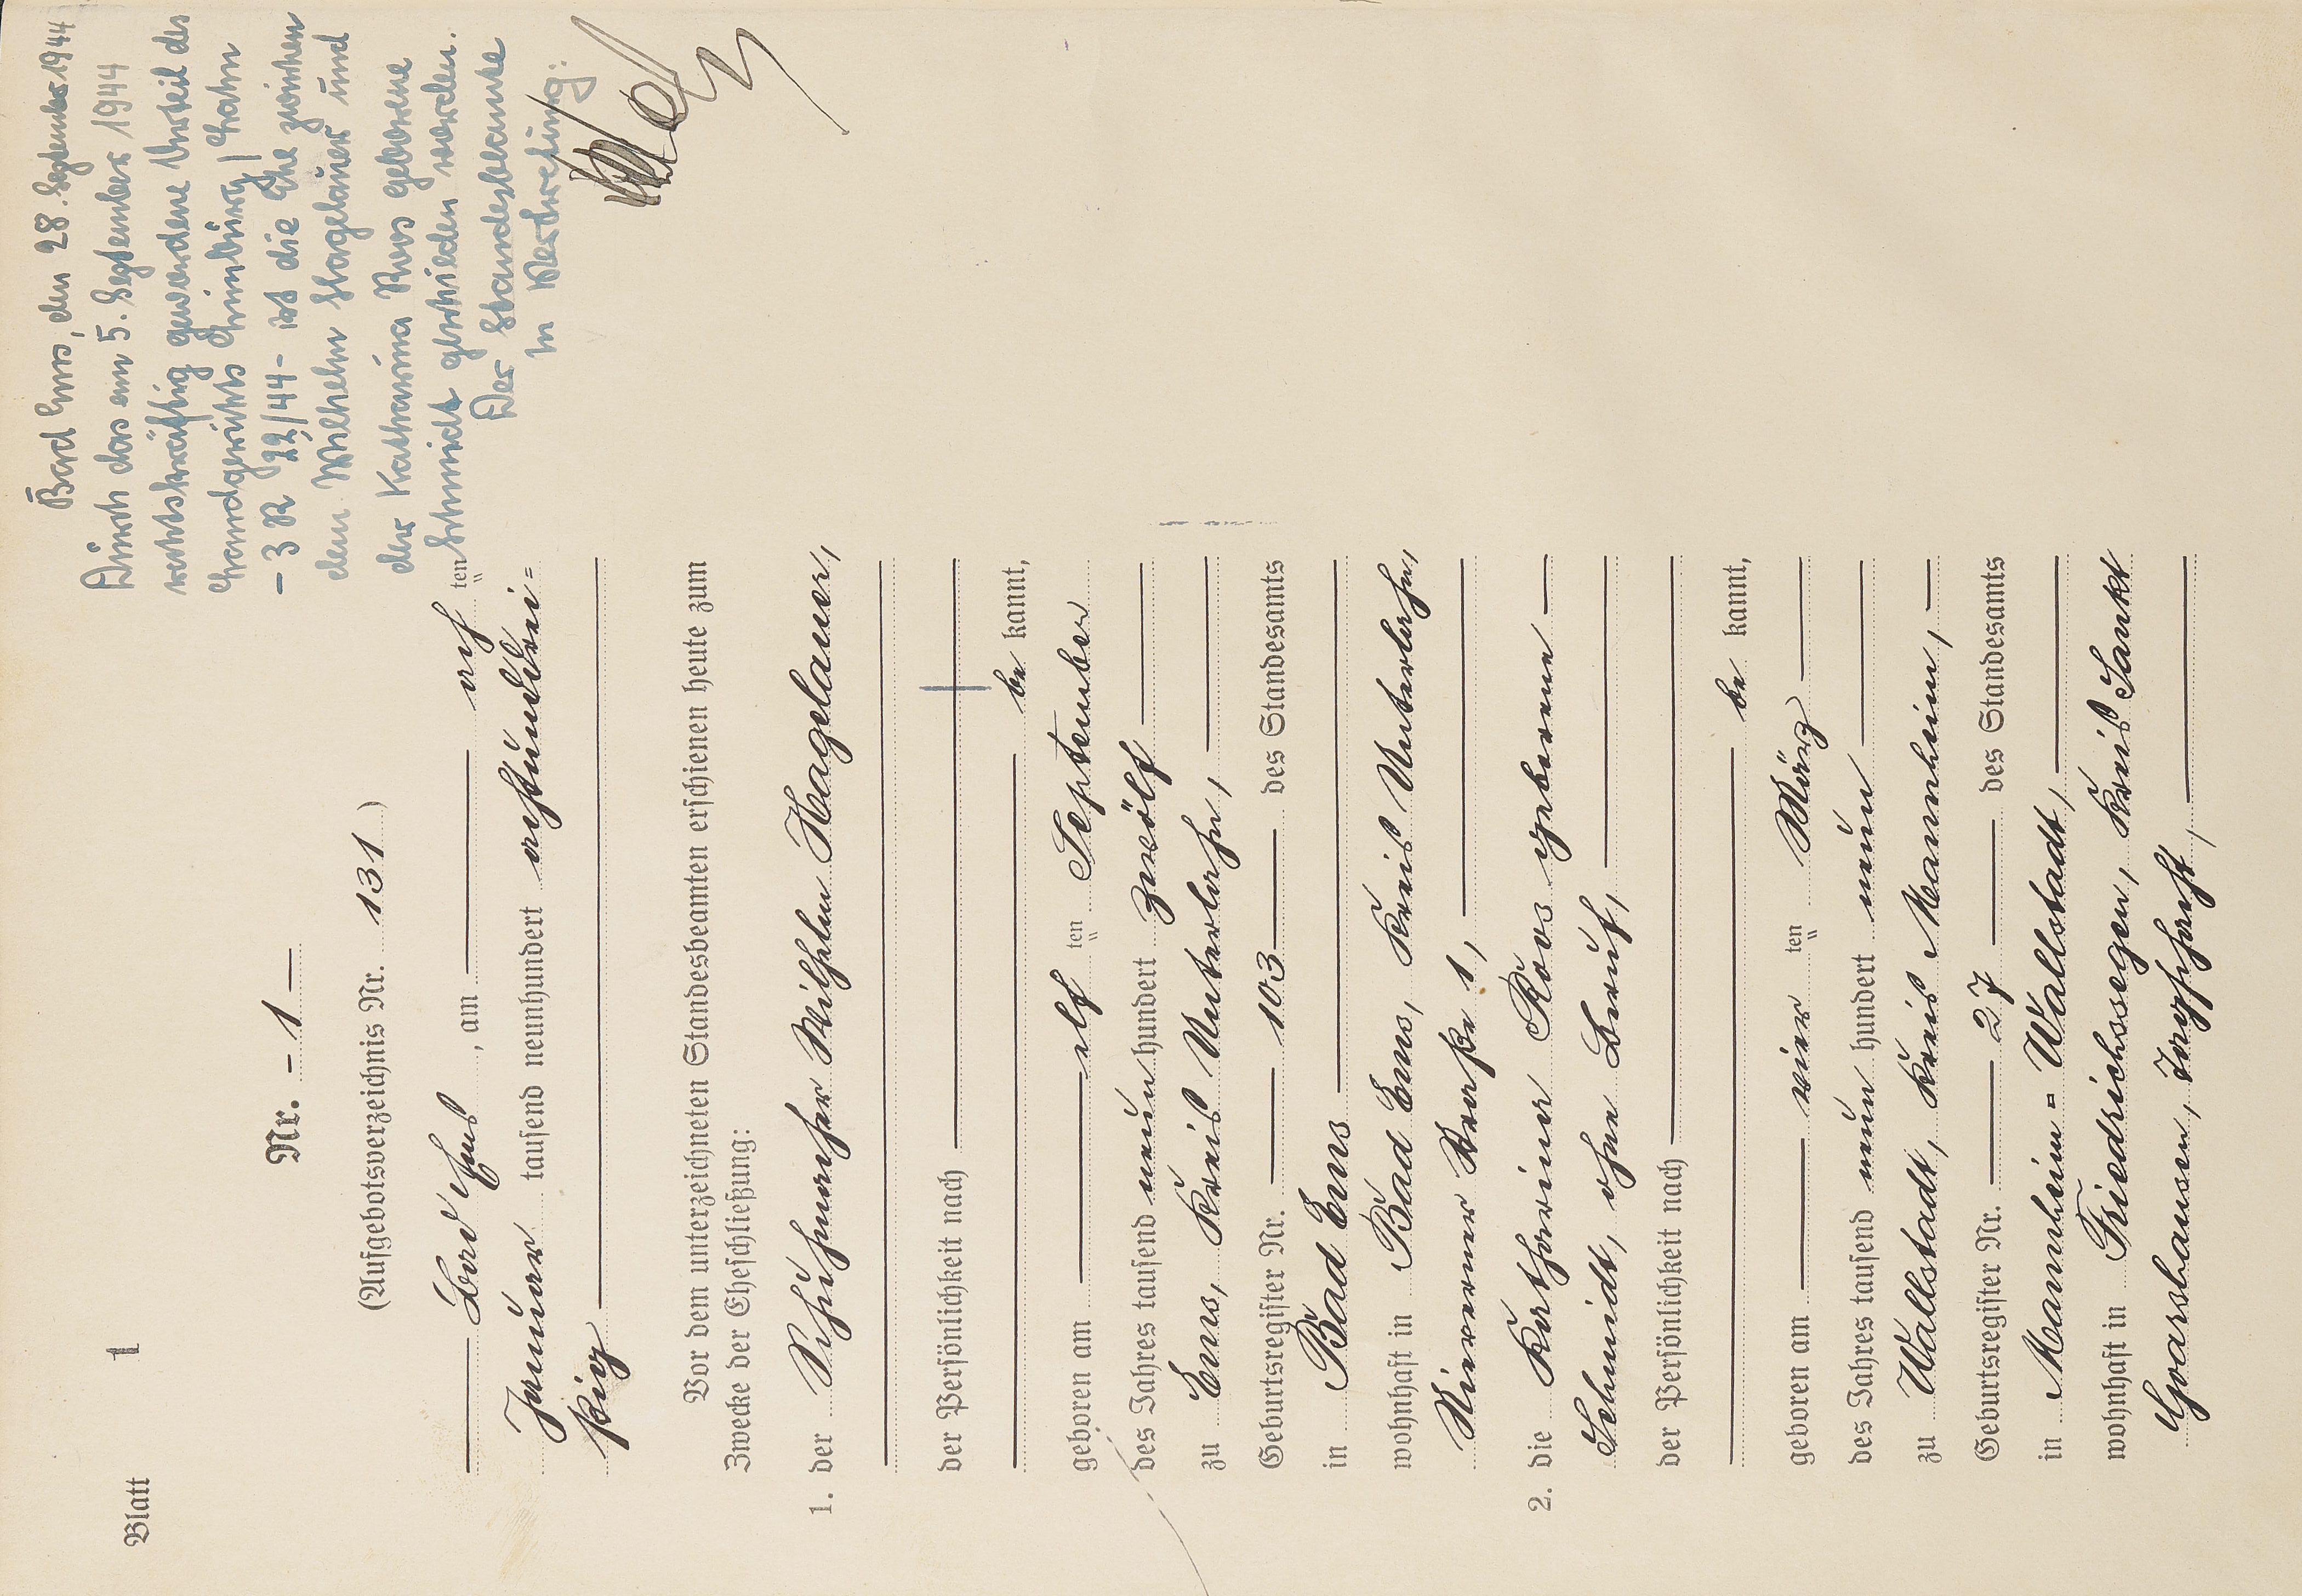 Blatt 1
Nr. - 1 -
(Aufgebotsverzeichnis Nr. 131)
Bad Ems, am acht ten
Januar tausend neunhundert achtunddrei=
ßig
Vor dem unterzeichneten Standesbeamten erschienen heute zum
Zwecke der Eheschließung:
1. der Schuhmacher Wilhelm Hagelauer,
der Persönlichkeit nach
be kannt,
geboren am elf ten September
des Jahres tausend neun hundert zwölf
zu Ems, Kreis Unterlahn,
Geburtsregister Nr. 103 des Standesamts
in Bad Ems
wohnhaft in Bad Ems, Kreis Unterlahn,
Straße 1,
2. die Katharina Roos geborene
Schmidt, ohne Beruf,
der Persönlichkeit nach
be kannt,
geboren am vier ten März
des Jahres tausend neun hundert neun
zu Wallstadt, Kreis Mannheim,
Geburtsregister Nr. 27 des Standesamts
in Mannheim = Wallstadt,
wohnhaft in Friedrichssegen, Kreis Sankt
Goarshausen,
Bad Ems, den 28. September 1944
Durch das am 5. September 1944
rechtskräftig gewordene Urteil des
Landgerichts Limburg/Lahn
- 3 R 22/44 - ist die Ehe zwischen
dem Wilhelm Hagelauer und
der Katharina Roos geborene
Schmidt geschieden worden.
Der Standesbeamte
In Vertretung: